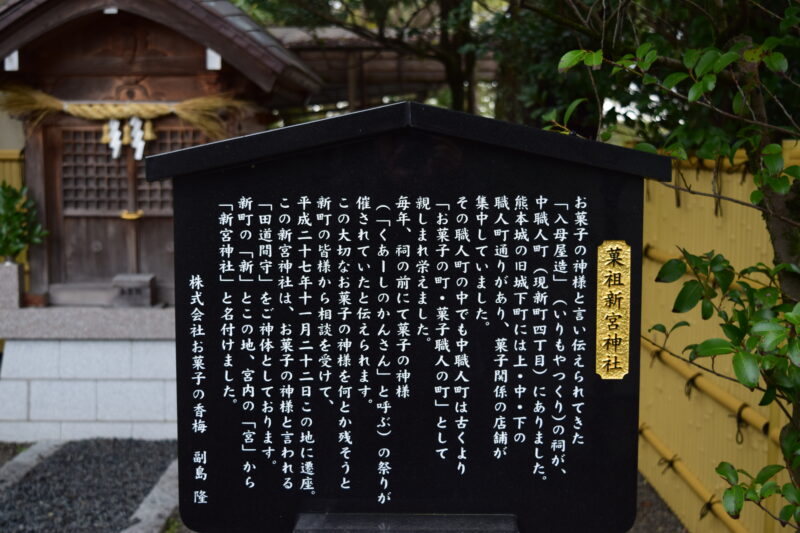 菓祖新宮神社
お菓子の神様と言い伝えられてきた
「入母屋造」（いりもやつくり）の祠が、
中職人町（現新町四丁目）にありました。
熊本城の旧城下町には上・中・下の
職人町通りがあり、菓子関係の店舗が
集中していました。
その職人町の中でも中職人町は古くより
「お菓子の町・菓子職人の町」として
親しまれ栄えました。
毎年、祠の前にて菓子の神様
（「くあーしのかんさん」と呼ぶ）の祭りが
催されていたと伝えられます。
この大切なお菓子の神様を何とか残そうと
新町の皆様から相談を受けて、
平成二十七年十一月二十二日この地に遷座。
この新宮神社は、お菓子の神様と言われる
「田道間守」をご神体としております。
新町の「新」とこの地、宮内の「宮」から
「新宮神社」と名付けました。
株式会社お菓子の香梅　副島 隆